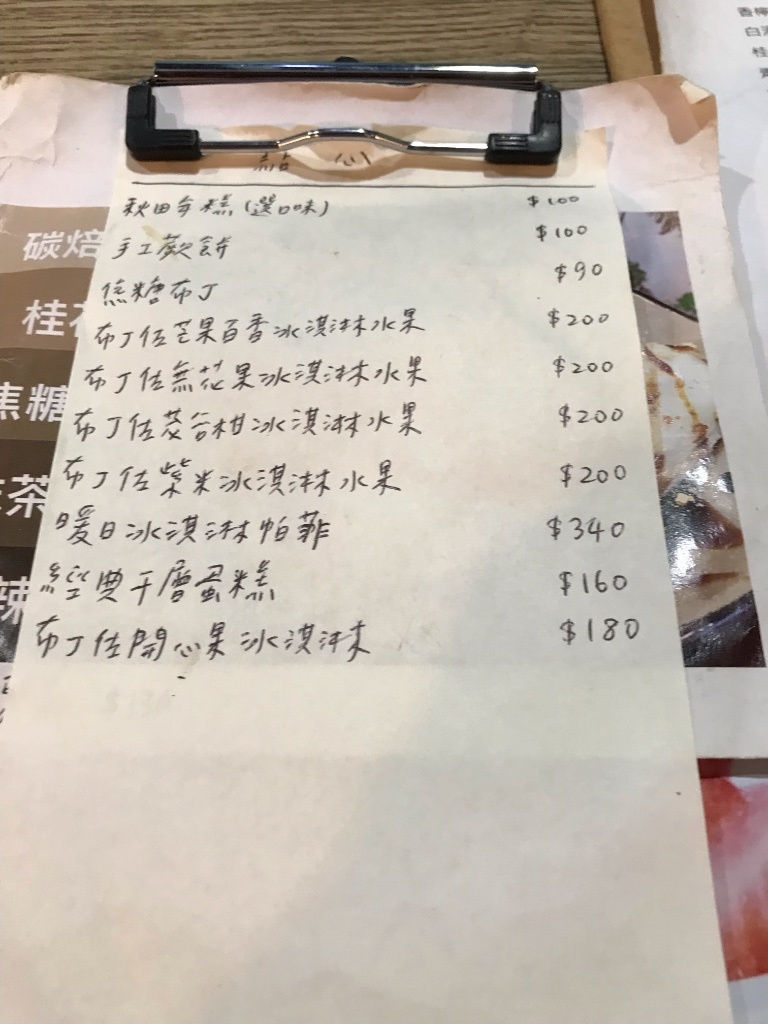 點心
秋田年糕(選口味) $100
手工蕨餅 $100
焦糖布丁 $90
布丁佐芒果百香冰淇淋水果 $200
布丁佐無花果冰淇淋水果 $200
布丁佐茂谷柑冰淇淋水果 $200
布丁佐紫米冰淇淋水果 $200
暖日冰淇淋帕菲 $340
經典千層蛋糕 $160
布丁佐開心果冰淇淋 $180
碳焙
桂花
焦糖
茶
辣
香檸
白
桂